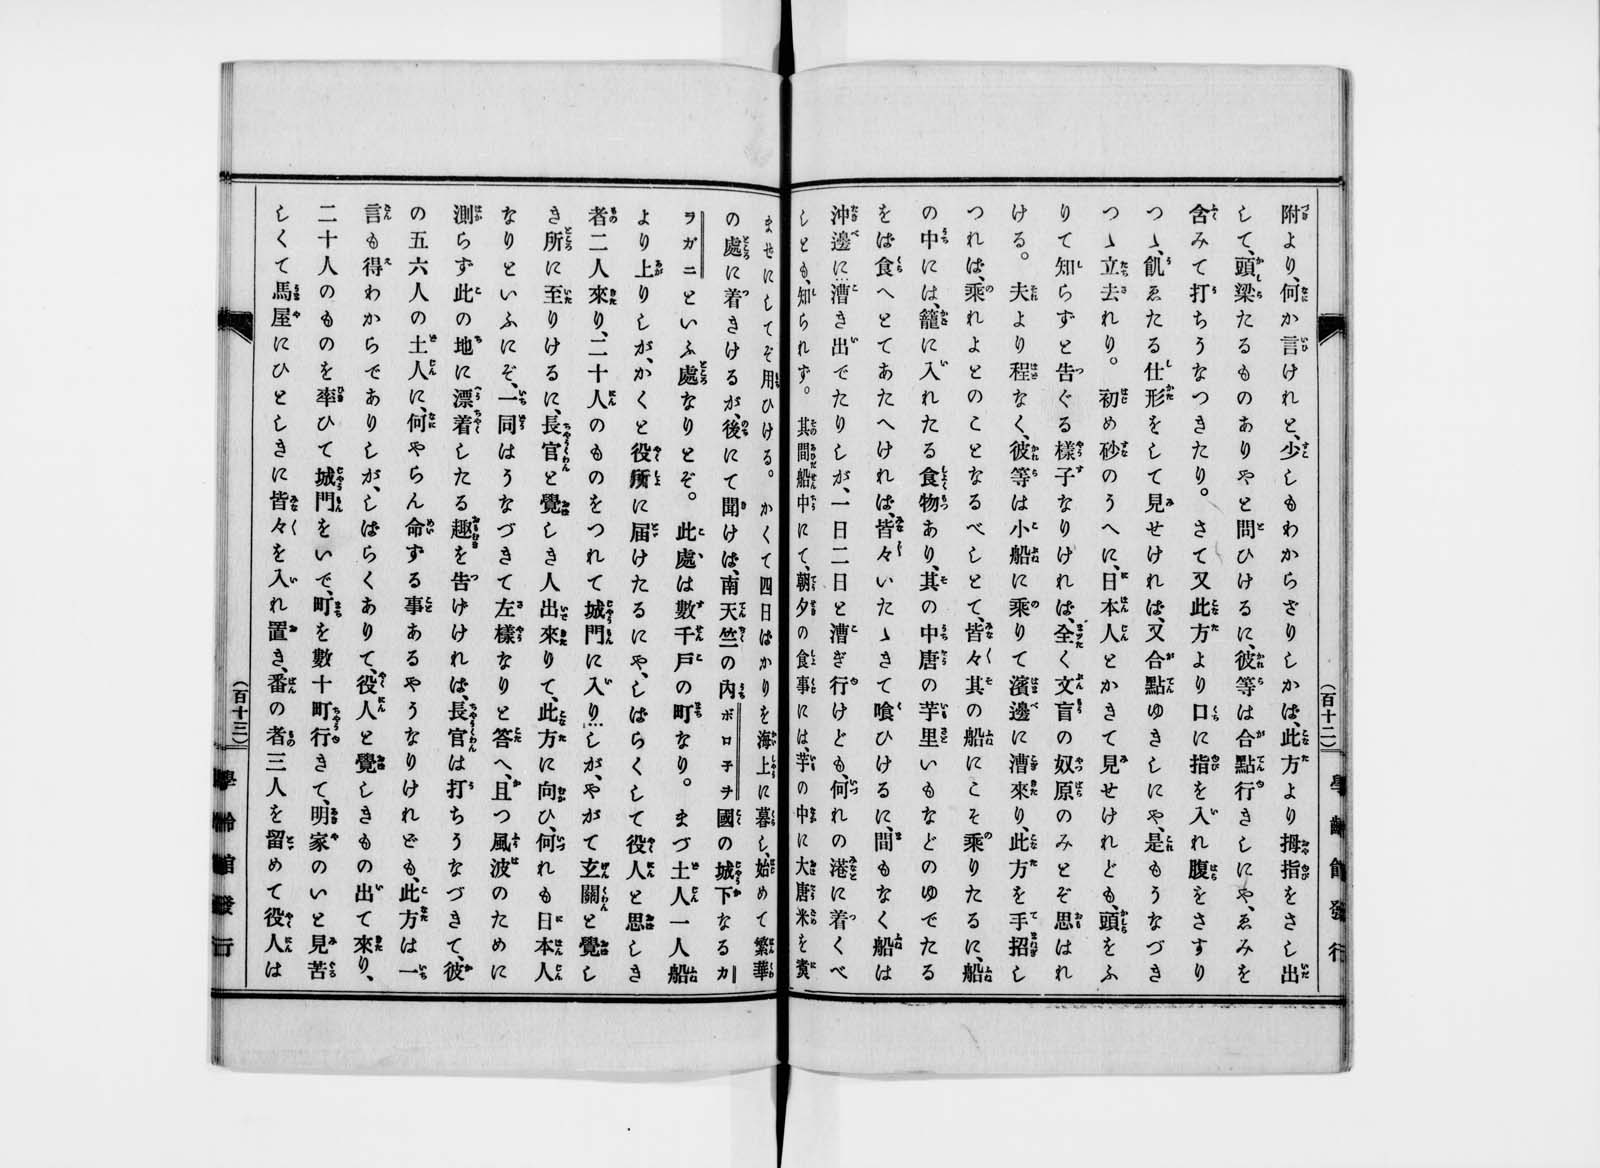 附より、何か言けれと、少しもわからざりしかば、此方より拇指をさし出
して、頭梁たるものありやと問ひけるに、彼等は合點行きしにや、ゑみを
含みて打ちうなつきたり。さて又此方より口に指を入れ腹をさすり
つヽ、飢ゑたる仕形をして見せければ、又合點ゆきしにや、是もうなづき
つヽ立去れり。初め砂のうへに、日本人とかきて見せけれども、頭をふ
りて知らずと告ぐる樣子なりければ、全く文盲の奴原のみとぞ思はれ
ける。夫より程なく、彼等は小船に乘りて濱邊に漕來り、此方を手招し
つれば、乘れよとのことなるべしとて、皆々其の船にこそ乘りたるに、船
の中には、籠に入れたる食物あり、其の中唐の芋里いもなどのゆでたる
をば食へとてあたへければ、皆々いたヾきて喰ひけるに、間もなく船は
沖邊に漕き出でたりしが、一日二日と漕ぎ行けども、何れの港に着くべ
しとも、知られず。其間船中にて、朝夕の食事には、芋の中に大唐米を煑
ませにしてぞ用ひける。かくて四日ばかりを海上に暮し、始めて繁華
の處に着きけるが、後にて聞けば、南天竺の内ボロ子ヲ國の城下なるカ
ヲガニといふ處なりとぞ。此處は數千戸の町なり。まづ土人一人船
より上りしが、かくと役所に届けたるにや、しばらくして役人と思しき
者二人來り、二十人のものをつれて城門に入りしが、やがて玄關と覺し
き所に至りけるに、長官と覺しき人出來りて、此方に向ひ、何れも日本人
なりといふにぞ、一同はうなづきて左樣なりと答へ、且つ風波のために
測らず此の地に漂着したる趣を告げければ、長官は打ちうなづきて、彼
の五六人の土人に、何やらん命ずる事あるやうなりけれども、此方は一
言も得わからでありしが、しばらくありて、役人と覺しきもの出て來り、
二十人のものを率ひて城門をいで、町を數十町行きて、明家のいと見苦
しくて馬屋にひとしきに皆々を入れ置き、番の者三人を留めて役人は
（百十二）
學齡館發行
（百十三）
學齡館發行